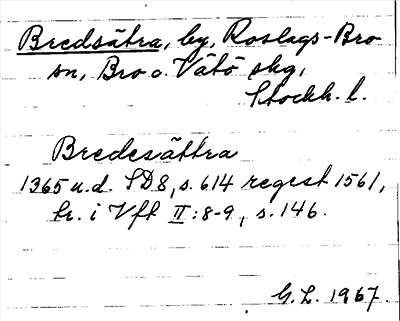 Bredsätra, by, Roslags-Bro
sn, Bro o. Vätö skg,
Stockh. l.
Bredesättra
1365 u.d. SD 8, s. 614 regest 1561,
tr. i Vft II:8-9, s. 146.
G.L. 1967.